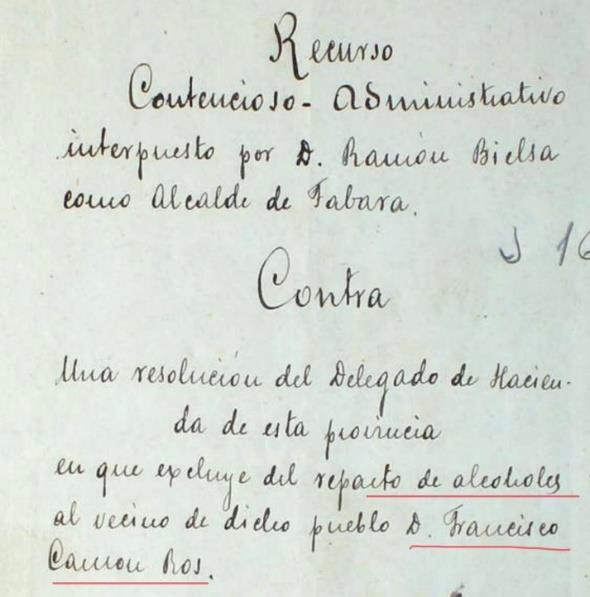 Recurso
Contencioso-Administrativo
interpuesto por D. Ramón Bielsa
como Alcalde de Fabara.
J 16
Contra
Una resolución del Delegado de Hacien-
da de esta provincia
en que excluye del reparto de alcoholes
al vecino de dicho pueblo D. Francisco
Camon Ros.